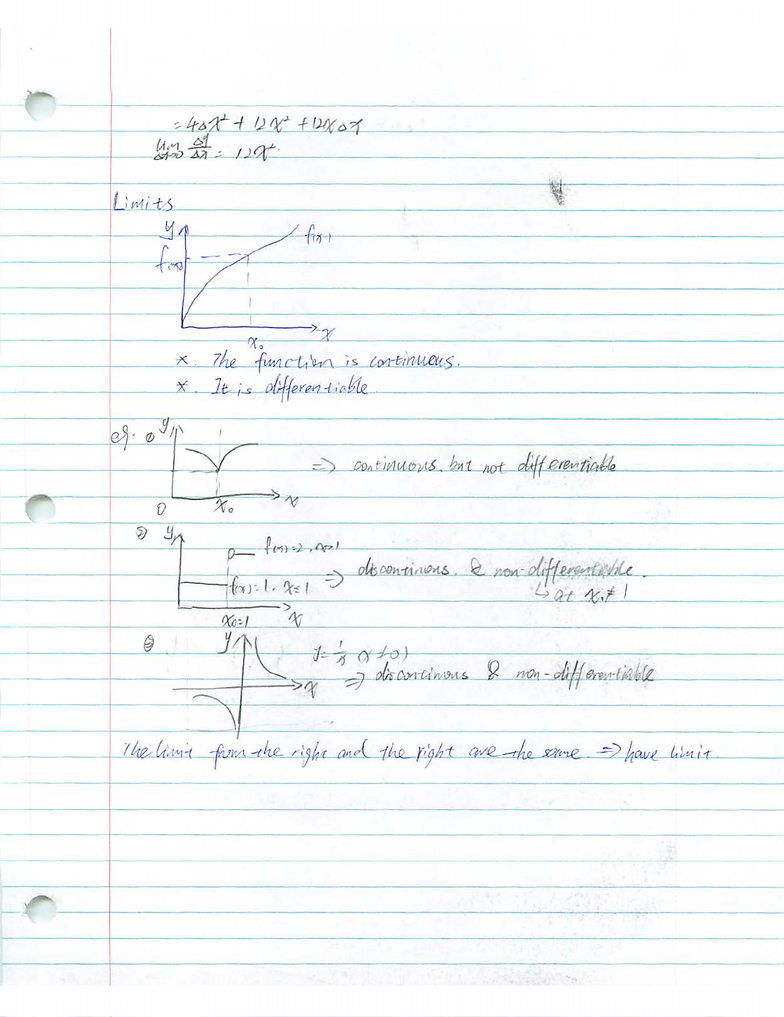 = 4Δx² + 12x² + 12xΔx
lim Δx→0 Δy/Δx = 12x²
Limits
y
f(x)
f(x₀)
x₀
x
*. The function is continuous.
*. It is differentiable.
eg. ① y
⇒ continuous. but not differentiable
0 x₀ x
② y
f(x)=2, x>1
f(x)=1. x≤1 ⇒ discontinous. & non-differentiable.
↳ at x₀≠1
x₀=1 x
③ y
y=1/x (x≠0)
x ⇒ discontinous & non-differentiable
The limit from the right and the right are the same. ⇒ have limit.